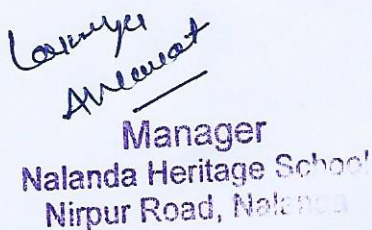 Manager
Nalanda Heritage School
Nirpur Road, Nalanda